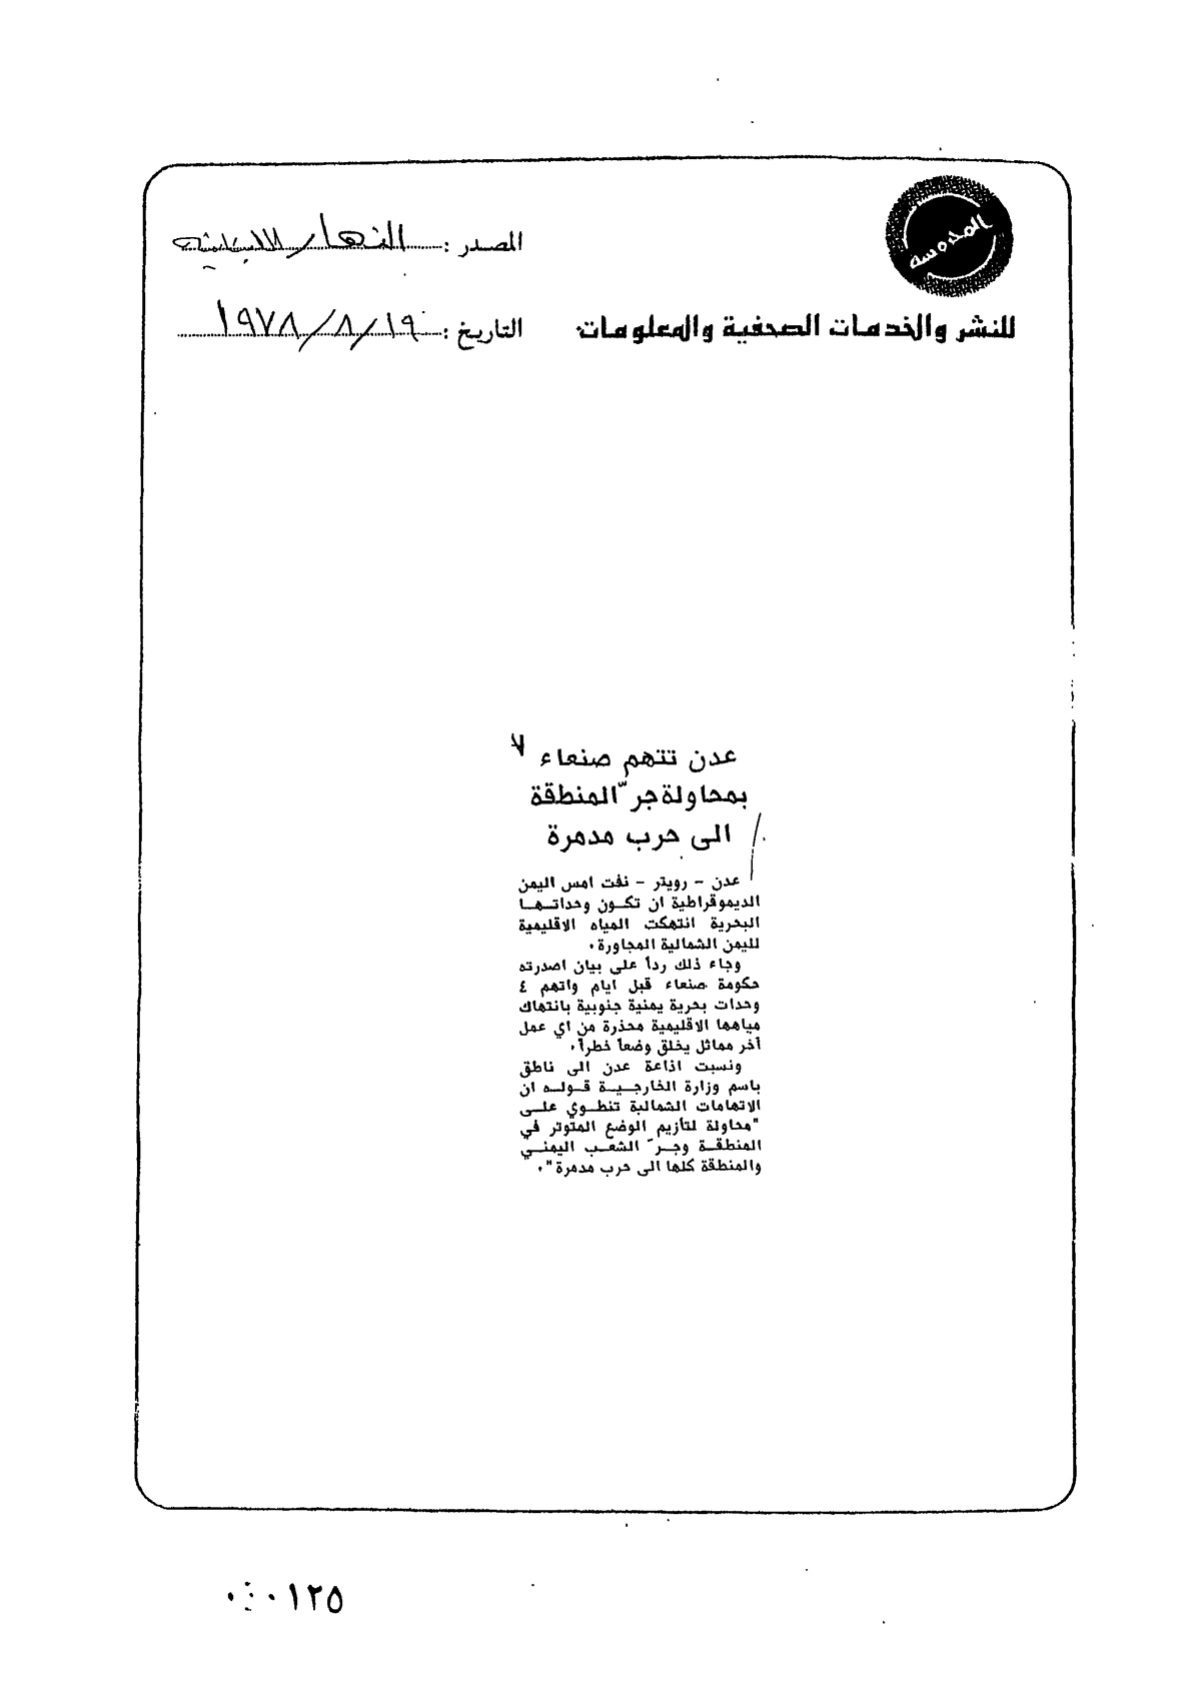 المدرسه
المصدر : النهار اللبنانية
للنشر والخدمات الصحفية والمعلومات
التاريخ : ١٩/٨/١٩٧٨
عدن تتهم صنعاء
بمحاولة جرّ المنطقة
الى حرب مدمرة
عدن - رويتر - نفت امس اليمن
الديموقراطية ان تكون وحداتها
البحرية انتهكت المياه الاقليمية
لليمن الشمالية المجاورة.
وجاء ذلك رداً على بيان اصدرته
حكومة صنعاء قبل ايام واتهم ٤
وحدات بحرية يمنية جنوبية بانتهاك
مياهها الاقليمية محذرة من اي عمل
آخر مماثل يخلق وضعاً خطراً.
ونسبت اذاعة عدن الى ناطق
باسم وزارة الخارجية قوله ان
الاتهامات الشمالية تنطوي على
"محاولة لتأزيم الوضع المتوتر في
المنطقة وجرّ الشعب اليمني
والمنطقة كلها الى حرب مدمرة".
١٢٥